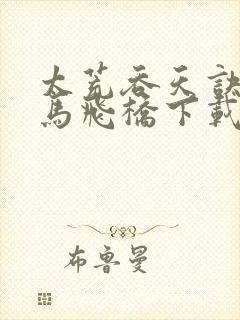 太荒吞天訣
馬飛橋下載
布魯曼